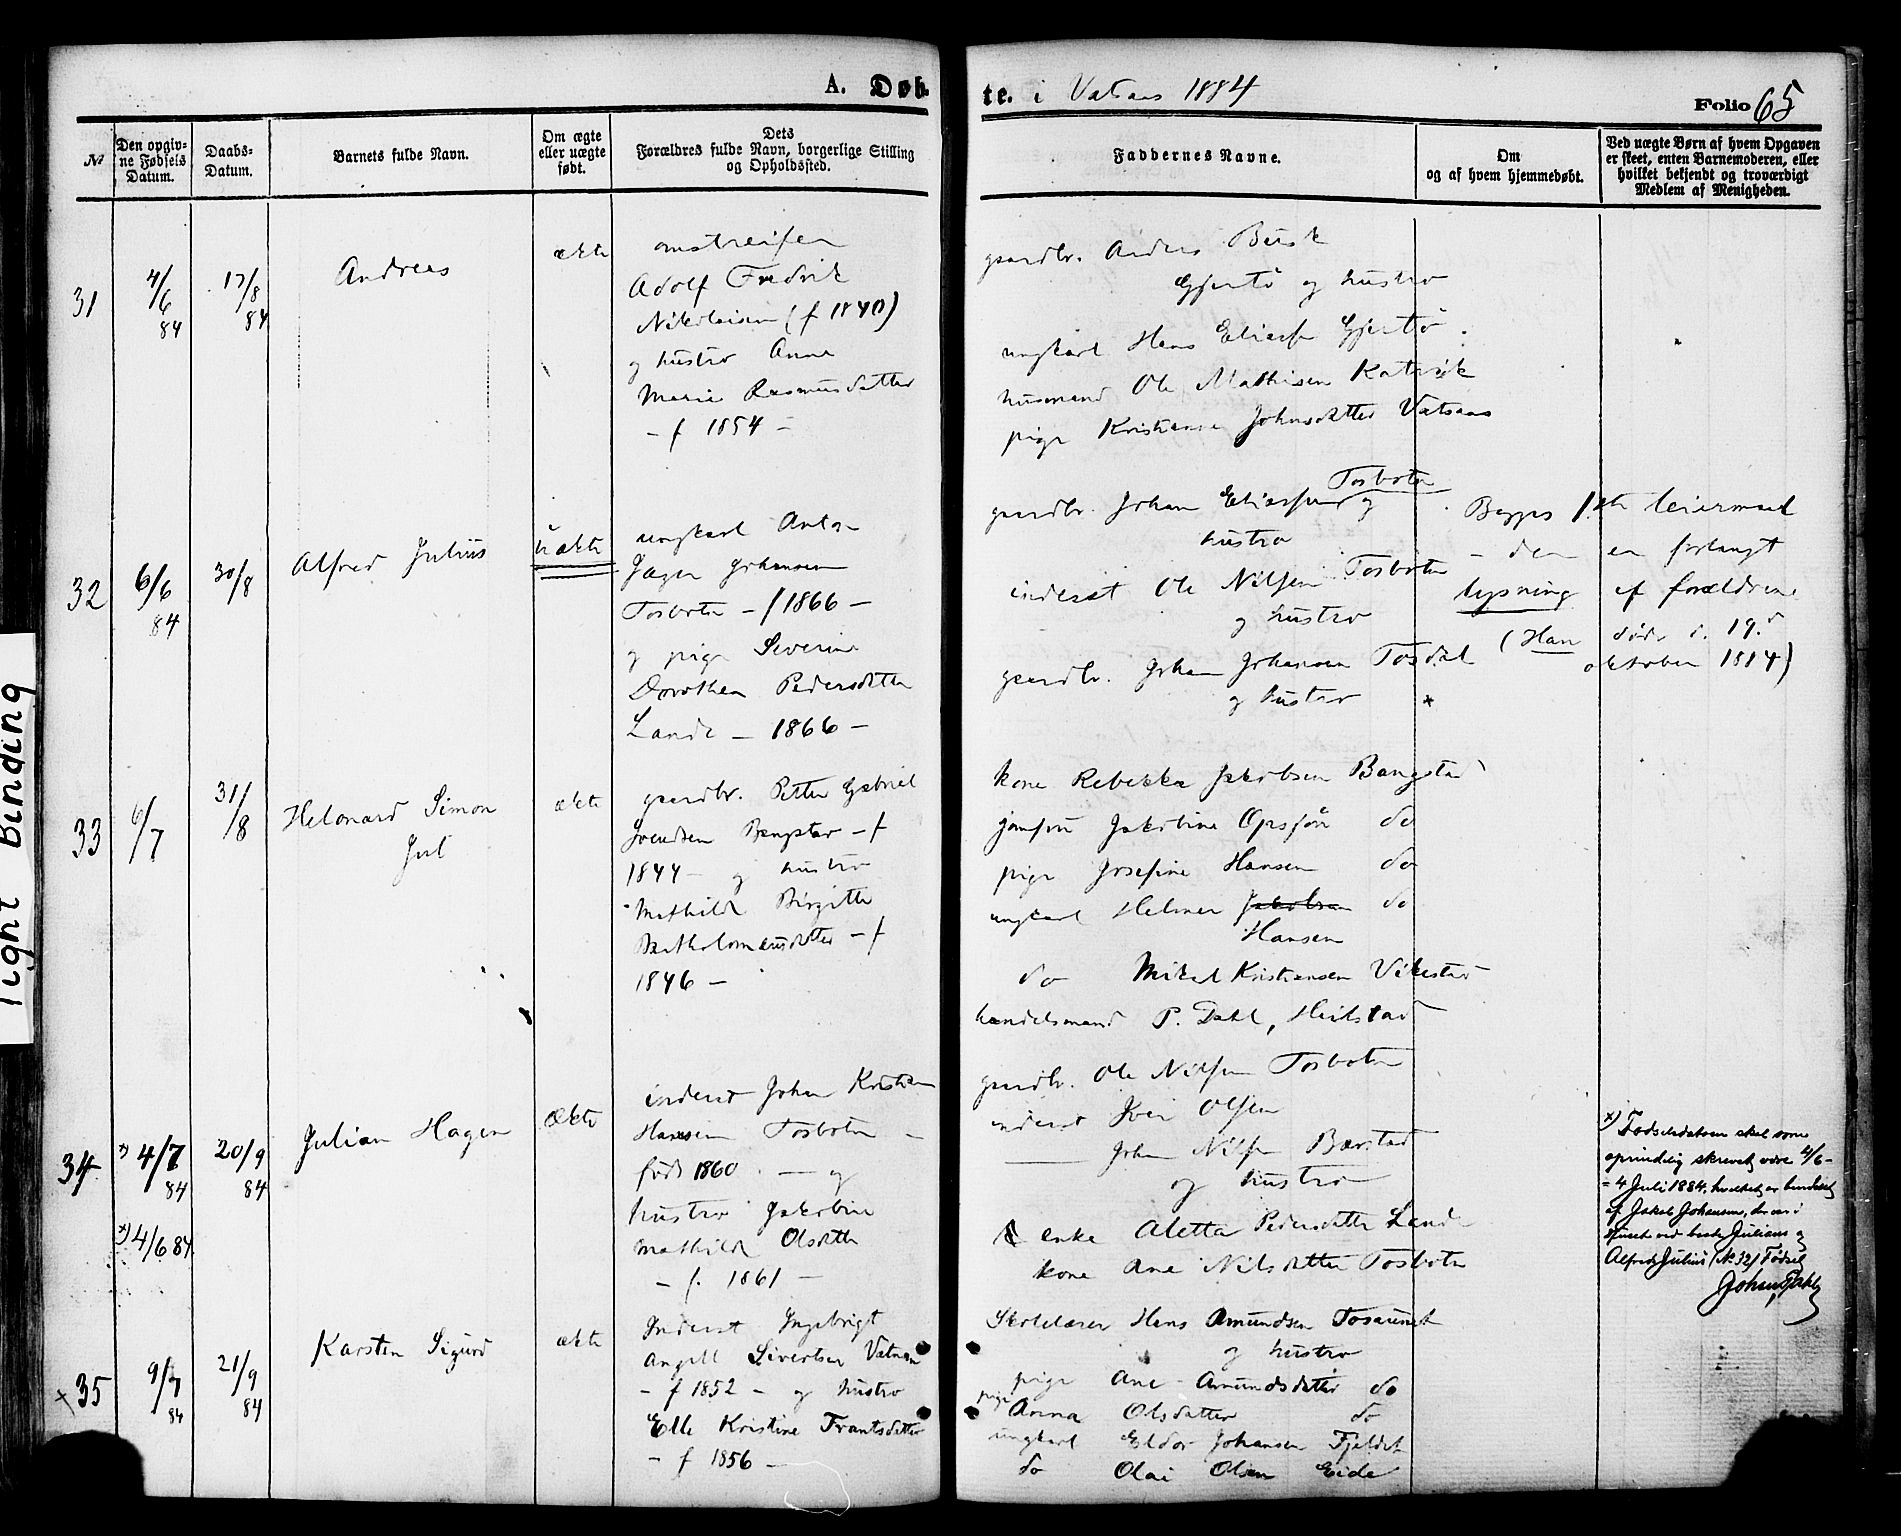 A. Døb-
te. i Vatsaas 1884
Folio 65
№
Den opgiv-
ne Fødsels
Datum.
Daabs-
Datum.
Barnets fulde Navn.
Om ægte
eller uægte
født.
Dets
Forældres fulde Navn, borgerlige Stilling
og Opholdssted.
Faddernes Navne.
Om
og af hvem hjemmedøbt.
Ved uægte Børn af hvem Opgaven
er skeet, enten Barnemoderen, eller
hvilket bekjendt og troværdigt
Medlem af Menigheden.
31
4/6 84
17/8 84
Andreas
ækte
omstreifer
Adolf Fredrik
Nikolaisen (f 1840)
og hustro Anne
Marie Rasmusdatter
- f 1854 -
gaardbr. Anders Busk
Gjertø og hustro
ungkarl Hans Eliass Gjertø
husmand Ole Mathisen
pige Kristianne Johnsdatter Vatsaas
32
6/6 84
30/8
Alfred Julius
uækte
ungkarl Anton
Jager Johansen
Tosbotn - f 1866 -
og pige Severine
Dorothea Pedersdatter
Lande - 1866 -
Tosbotn
gaardbr. Johan Eliassen og
hustro
inderst Ole Nilsen Tosbotn
og hustro
gaardbr. Johan Johansen Tosdal
og hustro
Begges 1.ste leiermaal
- der er forlangt
lysning af forældrene
(Han døde d. 19.d
oktober 1884)
33
6/7
31/8
Helonard Simon
Jul
ækte
gaardbr. Petter Gabriel
Svendsen Bangstad - f
1844 - og hustro
Mathilde Birgitte
Bartholomæusdatter - f
1846 -
kone Rebekka Jakobsen Bangstad
jomfru Jakobine Opsjøn do
pige Josefine Hansen do
ungkarl Helmer Jakobsen do
Hansen
do Mikal Kristiansen Vikestad
handelsmand P. Dahl, Heilstad
34
x) 4/7 84
x) 4/6 84
20/9 84
Julian Hagen
ækte
inderst Johan Kristian
Hansen Tosbotn -
født 1860 - og
hustro Jakobine
Mathilde Olsdatter
- f. 1861 -
gaardbr. Ole Nilsen Tosbotn
inderst Iver Olsen
Johan Nilsen Bærstad
og hustro
enke Aletta Pedersdatter Lande
kone Ane Nilsdatter Tosbotn
x) Fødselsdatoen skal som
oprindelig skrevet være 4/6 -
= 4 Juli 1884, hvilket er
af Jakob Johansen, der var i
huset ved baade Julians og
Alfred Julius' (№ 32) Fødsel
35
9/7 84
21/9 84
Karsten Sigurd
ækte
Inderst Ingebrigt
Angell Sivertsen Vatnan
- f 1852 - og hustro
Elle Kristine Frantsdatter
- f 1856 -
Skolelærer Hans Amundsen Tosaunet
og hustro
pige Ane Amundsdatter do
pige Anna Olsdatter do
ungkarl Eldor Johansen Fjeldet
do Olai Olsen Eide
Tight Binding